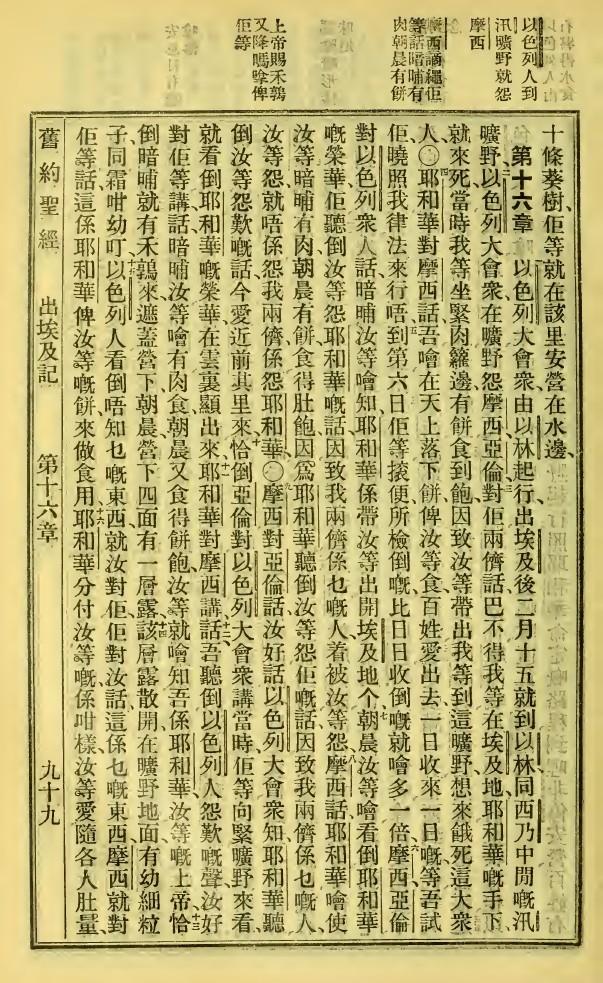 以色列人到
汛曠野就怨
摩西
等話暗晡有
肉朝晨有餅
上帝賜禾鶉
又降嗎唥俾
佢等
十條葵樹、佢等就在該里安營在水邊、
第十六章 一以色列大會衆由以林起行出埃及後二月十五就到以林同西乃中間嘅汛
曠野、二以色列大會衆在曠野怨摩西亞倫、三對佢兩儕話巴不得我等在埃及地耶和華嘅手下
就來死、當時我等坐緊肉籮邊有餅食到飽、因致汝等帶出我等到這曠野想來餓死這大衆
人、〇四耶和華對摩西話吾噲在天上落下餅俾汝等食百姓愛出去一日收來一日嘅等吾試
佢曉照我律法來行唔、五到第六日佢等㨹便所檢倒嘅比日日收倒嘅就噲多一倍、六摩西亞倫
對以色列衆人話暗晡汝等噲知耶和華係帶汝等出開埃及地个、七朝晨汝等噲看倒耶和華
嘅榮華、佢聽倒汝等怨耶和華嘅話、因致我兩儕係乜嘅人着被汝等怨、八摩西話耶和華噲使
汝等暗晡有肉朝晨有餅食得肚飽、因爲耶和華聽倒汝等怨佢嘅話、因致我兩儕係乜嘅人、
汝等怨就唔係怨我兩儕係怨耶和華、〇九摩西對亞倫話汝好話以色列大會衆知耶和華聽
倒汝等怨歎嘅話今愛近前其里來、十恰倒亞倫對以色列大會衆講當時佢等向緊曠野來看
就看倒耶和華嘅榮華在雲裏顯出來、十一耶和華對摩西講話、十二吾聽倒以色列人怨歎嘅聲、汝好
對佢等講話暗晡汝等噲有肉食朝晨又食得餅飽、汝等就噲知吾係耶和華、汝等嘅上帝、十三恰
倒暗晡就有禾鶉來遮蓋營下、朝晨營下四面有一層露、十四該層露散開在曠野地面有幼細粒
子同霜咁幼叮、十五以色列人看倒唔知乜嘅東西就汝對佢佢對汝話這係乜嘅東西、摩西就對
佢等話這係耶和華俾汝等嘅餅來做食用、十六耶和華分付汝等嘅係咁樣、汝等愛隨各人肚量、
舊約聖經 出埃及記 第十六章 九十九